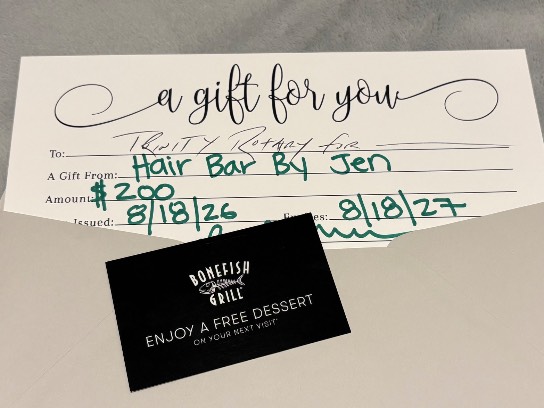 a gift for you
To: Trinity Rotary for
A Gift From: Hair Bar By Jen
Amount: $200
Issued: 8/18/26 8/18/27
BONEFISH
GRILL
ENJOY A FREE DESSERT
ON YOUR NEXT VISIT*